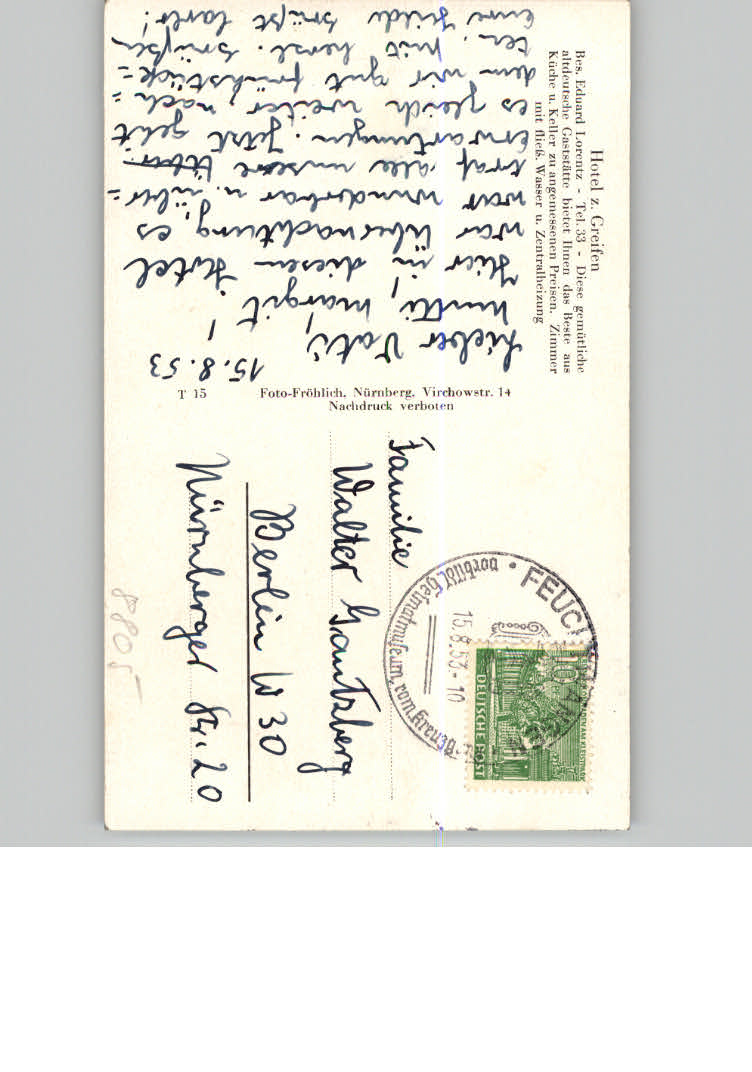 Hotel z. Greifen
Bes. Eduard Lorentz - Tel. 33 - Diese gemütliche
altdeutsche Gaststätte bietet Ihnen das Beste aus
Küche u. Keller zu angemessenen Preisen. Zimmer
mit fließ. Wasser u. Zentralheizung
15.8.53
Lieber Vati,
Mutti, Margit!
Hier in diesem Hotel
war Übernachtung, es
war wunderbar u. über=
traf alle unsere
Erwartungen. Jetzt geht
es gleich weiter, nach=
dem wir gut frühstück=
ten. Mit herzl. Grüßen
eure Hilde grüßt Carlo!
T 15
Foto-Fröhlich, Nürnberg, Virchowstr. 14
Nachdruck verboten
FEUCHTWANGEN
vorbildl. Heimatmuseum, rom. Kreuzgang
15.8.53.-10
10
DEUTSCHE POST
Familie
Walter Gantzberg
Berlin W 30
Nürnberger Str. 20
8805